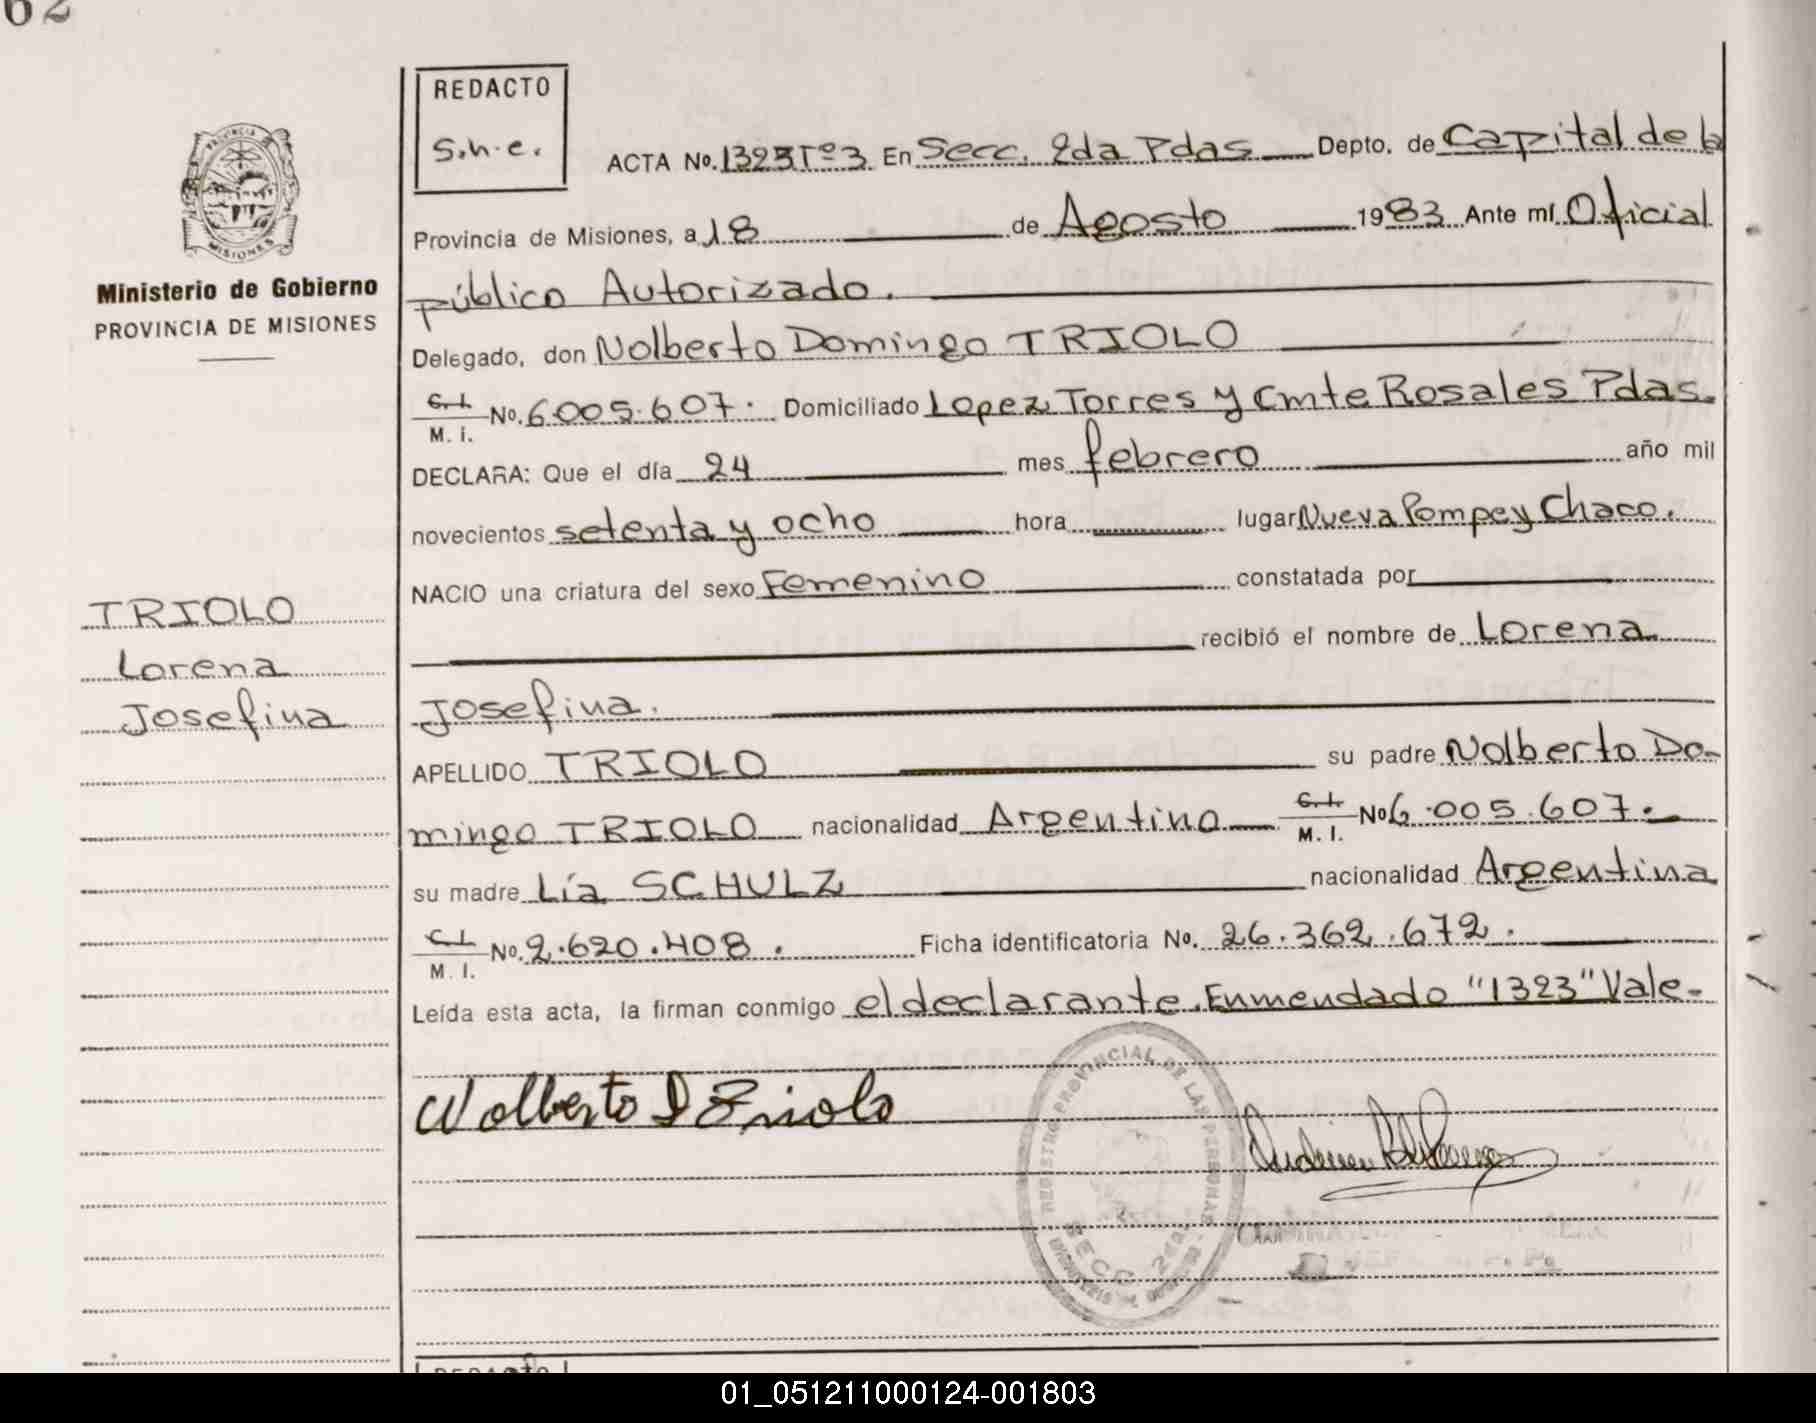 62
REDACTO
S.h.e.
ACTA No. 1323 Tº 3 En Secc. 2da Pdas Depto. de Capital de la
Provincia de Misiones, a 18 de Agosto 1983 Ante mí Oficial
público Autorizado.
Delegado, don Nolberto Domingo TRIOLO
C.I.
M. I. No. 6.005.607. Domiciliado Lopez Torres y Cmte Rosales Pdas.
DECLARA: Que el día 24 mes febrero año mil
novecientos setenta y ocho hora lugar Nueva Pompey Chaco.
NACIO una criatura del sexo Femenino constatada por
recibió el nombre de Lorena
Josefina.
APELLIDO TRIOLO su padre Nolberto Do-
mingo TRIOLO nacionalidad Argentino C.I. M. I. No 6.005.607.
su madre Lía SCHULZ nacionalidad Argentina
C.I.
M. I. No. 2.620.408. Ficha identificatoria No. 26.362.672.
Leída esta acta, la firman conmigo el declarante. Enmendado "1323" Vale-
Nolberto D Triolo
PROVINCIA
MISIONES
Ministerio de Gobierno
PROVINCIA DE MISIONES
TRIOLO
Lorena
Josefina
REGISTRO PROVINCIAL DE LAS PERSONAS
SECC. 2da.
REDACTO
01_051211000124-001803